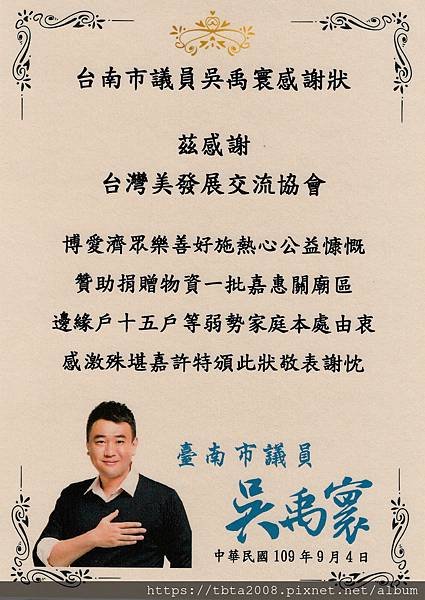 台南市議員吳禹寰感謝狀
茲感謝
台灣美發展交流協會
博愛濟眾樂善好施熱心公益慷慨
贊助捐贈物資一批嘉惠關廟區
邊緣戶十五戶等弱勢家庭本處由衷
感激殊堪嘉許特頒此狀敬表謝忱
臺南市議員
吳禹寰
中華民國 109 年 9 月 4 日
https://tbta2008.pixnet.net/album